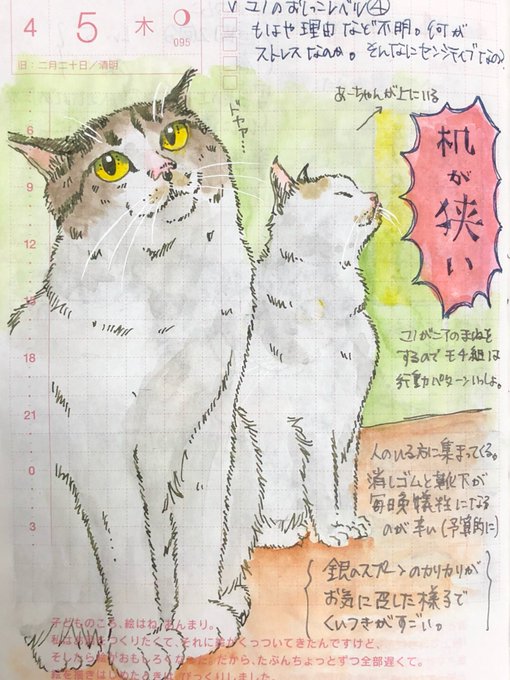 4 5 木
095
旧:二月二十日/清明
ユノのおしっこレベル④
もはや理由など不明。何が
ストレスなのか。そんなにセンシティブなの?
あーちゃんが上にいる
ドヤァ…
机が狭い
6
9
12
18
21
0
3
ユノがニアのまねを
するのでモチ組は
行動パターンいっしょ。
人のいる方に集まってくる。
消しゴムと靴下が
毎晩犠牲になる
のが辛い(予算的に)
銀のスプーンのカリカリが
お気に召した様子で
くいつきがすごい。
子どものころ、絵はね、あんまり。
私はお話をつくりたくて、それに絵がくっついてきたんですけど、
そしたら絵がおもしろくなった。だから、たぶんちょっとずつ全部遅くて。
絵を描きはじめたときは、びっくりしました。